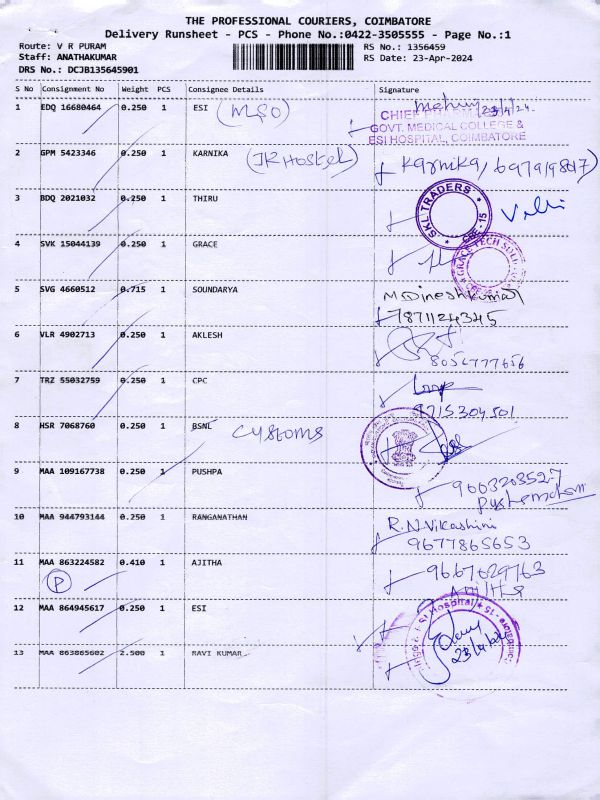 THE PROFESSIONAL COURIERS, COIMBATORE
Delivery Runsheet - PCS - Phone No.:0422-3505555 - Page No.:1
Route: V R PURAM
RS No.: 1356459
Staff: ANATHAKUMAR
RS Date: 23-Apr-2024
DRS No.: DCJB135645901
S No Consignment No Weight PCS Consignee Details Signature
1 EDQ 16680464 0.250 1 ESI (MSO) 23/4/24
GOVT. MEDICAL COLLEGE &
ESI HOSPITAL, COIMBATORE
2 GPM 5423346 0.250 1 KARNIKA (JR Hostel) Karnika
3 BDQ 2021032 0.250 1 THIRU SKL TRADERS CBE-15
4 SVK 15044139 0.250 1 GRACE GRACE TECH
5 SVG 4660512 0.715 1 SOUNDARYA M Dineshkumar
7871124345
6 VLR 4902713 0.250 1 AKLESH
8056777656
7 TRZ 55032759 0.250 1 CPC
9715304501
8 HSR 7068760 0.250 1 BSNL Customs
9 MAA 109167738 0.250 1 PUSHPA
10 MAA 944793144 0.250 1 RANGANATHAN R.N.Vikashini
9677865653
11 MAA 863224582 0.410 1 AJITHA 9667629763
P Ajitha
12 MAA 864945617 0.250 1 ESI Hospital
13 MAA 863865602 2.500 1 RAVI KUMAR 23/4/24